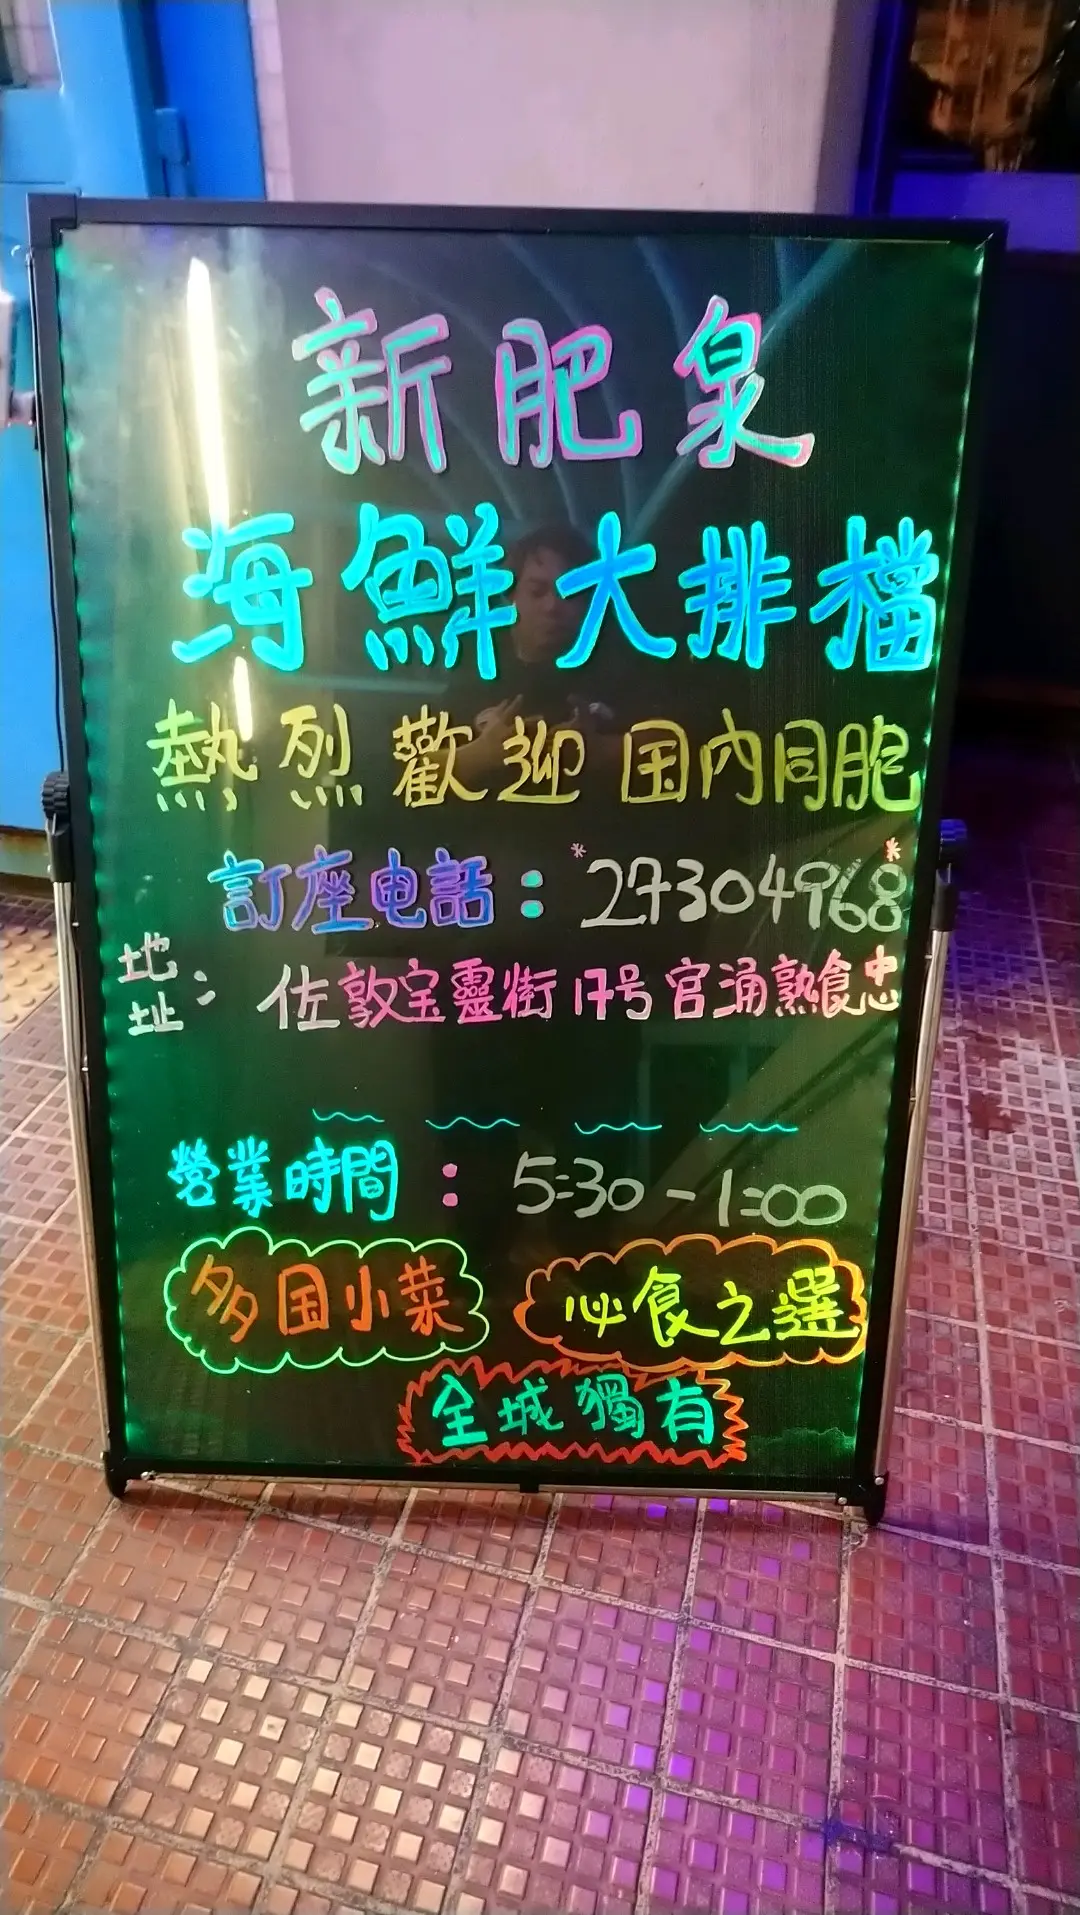 新肥泉
海鮮大排檔
熱烈歡迎国內同胞
訂座电話：*27304968*
地址：佐敦宝靈街17号官涌熟食忠
營業時間：5:30-1:00
多国小菜 必食之選
全城獨有